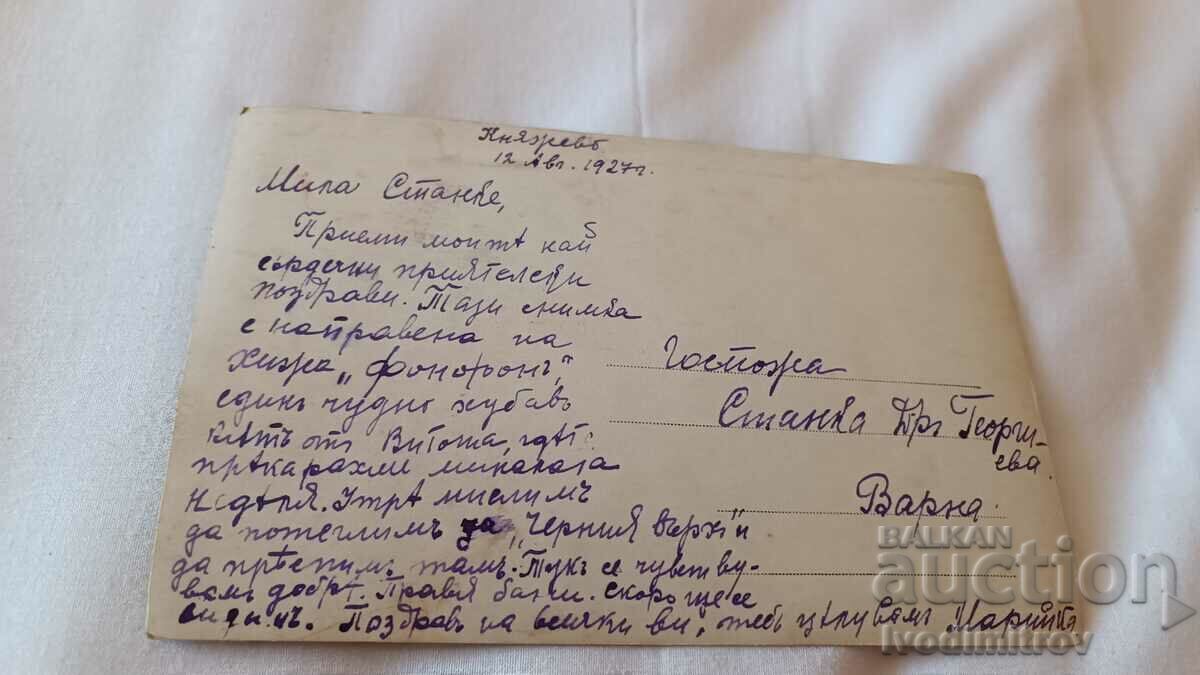 Княжевъ
12 Авг. 1927 г.
Мила Станке,
Приеми моитѣ най
сърдечни приятелски
поздрави. Тази снимка
е направена на
хижа „Фонфонъ",
единъ чудно хубавъ
кѫтъ отъ Витоша, гдѣто
прѣкарахми миналата
неделя. Утрѣ мислимъ
да потеглимъ за „Черния връхъ" и
да прѣспимъ тамъ. Тукъ се чувству-
вамъ добрѣ. Правя бани. Скоро ще се
видимъ. Поздравъ на всички ви, тебъ цѣлувамъ Марийка
Госпожа
Станка Д-ръ Георги-
ева
Варна
BALKAN
auction
Ivodimitrov